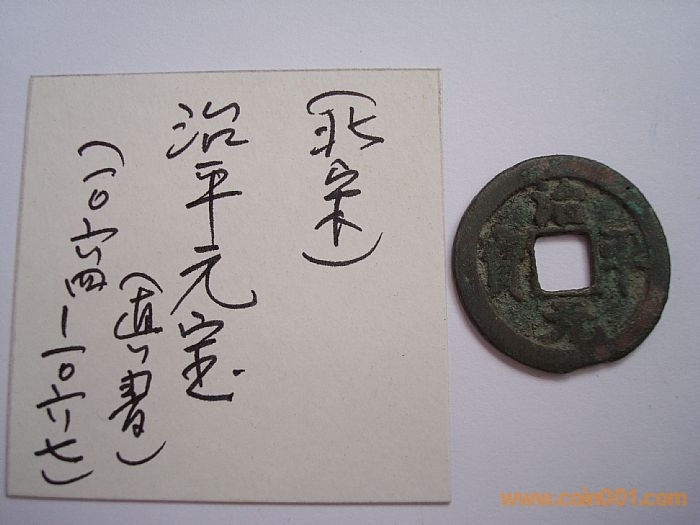 (北宋)
治平元宝
(真書)
(一〇六四—一〇六七)
治平元寶
www.coin001.com